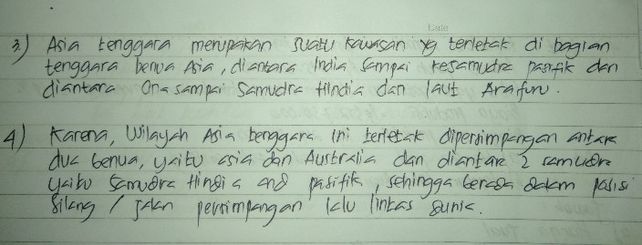 3) Asia tenggara merupakan suatu kawasan yg terletak di bagian
tenggara benua Asia, diantara India sampai kesamudra pasifik dan
diantara Cina sampai Samudra Hindia dan laut Arafuru.
4) Karena, Wilayah Asia tenggara ini terletak dipersimpangan antara
dua benua, yaitu asia dan Australia dan diantara 2 samudra
yaitu Samudra Hindia and pasifik, sehingga berada dalam posisi
Silang / jalan persimpangan lalu lintas dunia.